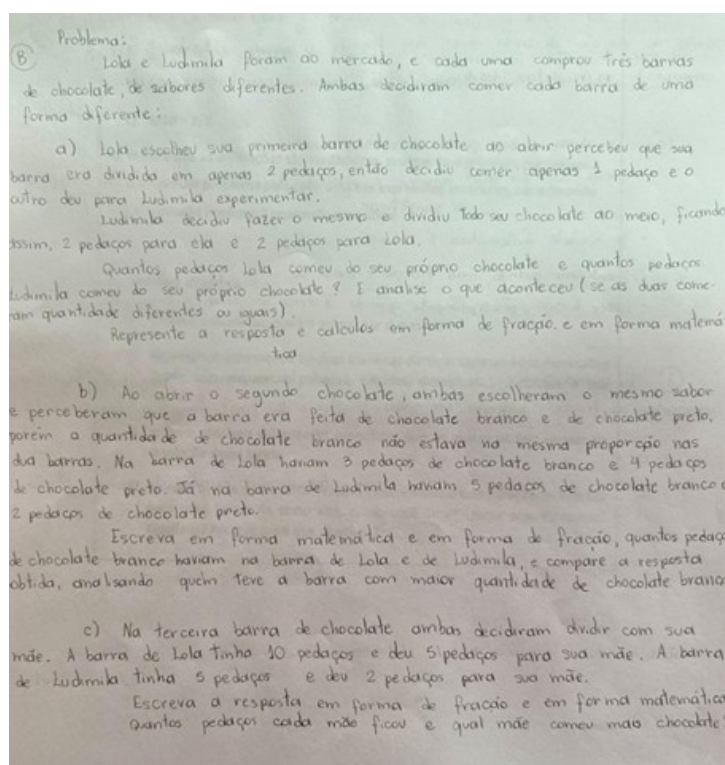 Problema:
B Lola e Ludmila foram ao mercado, e cada uma comprou três barras
de chocolate, de sabores diferentes. Ambas decidiram comer cada barra de uma
forma diferente:
a) Lola escolheu sua primeira barra de chocolate ao abrir percebeu que sua
barra era dividida em apenas 2 pedaços, então decidiu comer apenas 1 pedaço e o
outro deu para Ludmila experimentar.
Ludmila decidiu fazer o mesmo e dividiu todo seu chocolate ao meio, ficando
assim, 2 pedaços para ela e 2 pedaços para Lola.
Quantos pedaços Lola comeu do seu próprio chocolate e quantos pedaços
Ludmila comeu do seu próprio chocolate? E analise o que aconteceu (se as duas come-
ram quantidade diferentes ou iguais).
Represente a resposta e calculos em forma de fração. e em forma matemá
tica
b) Ao abrir o segundo chocolate, ambas escolheram o mesmo sabor
e perceberam que a barra era feita de chocolate branco e de chocolate preto,
porém a quantidade de chocolate branco não estava na mesma proporção nas
dua barras. Na barra de Lola haviam 3 pedaços de chocolate branco e 4 pedaços
de chocolate preto. Já na barra de Ludmila haviam 5 pedaços de chocolate branco e
2 pedaços de chocolate preto.
Escreva em forma matemática e em forma de fração, quantos pedaço
de chocolate branco haviam na barra de Lola e de Ludmila, e compare a resposta
obtida, analisando quem teve a barra com maior quantidade de chocolate branc
c) Na terceira barra de chocolate ambas decidiram dividir com sua
mãe. A barra de Lola tinha 10 pedaços e deu 5 pedaços para sua mãe. A barra
de Ludmila tinha 5 pedaços e deu 2 pedaços para sua mãe.
Escreva a resposta em forma de fração e em forma matemática
Quantos pedaços cada mãe ficou e qual mãe comeu mais chocolate?